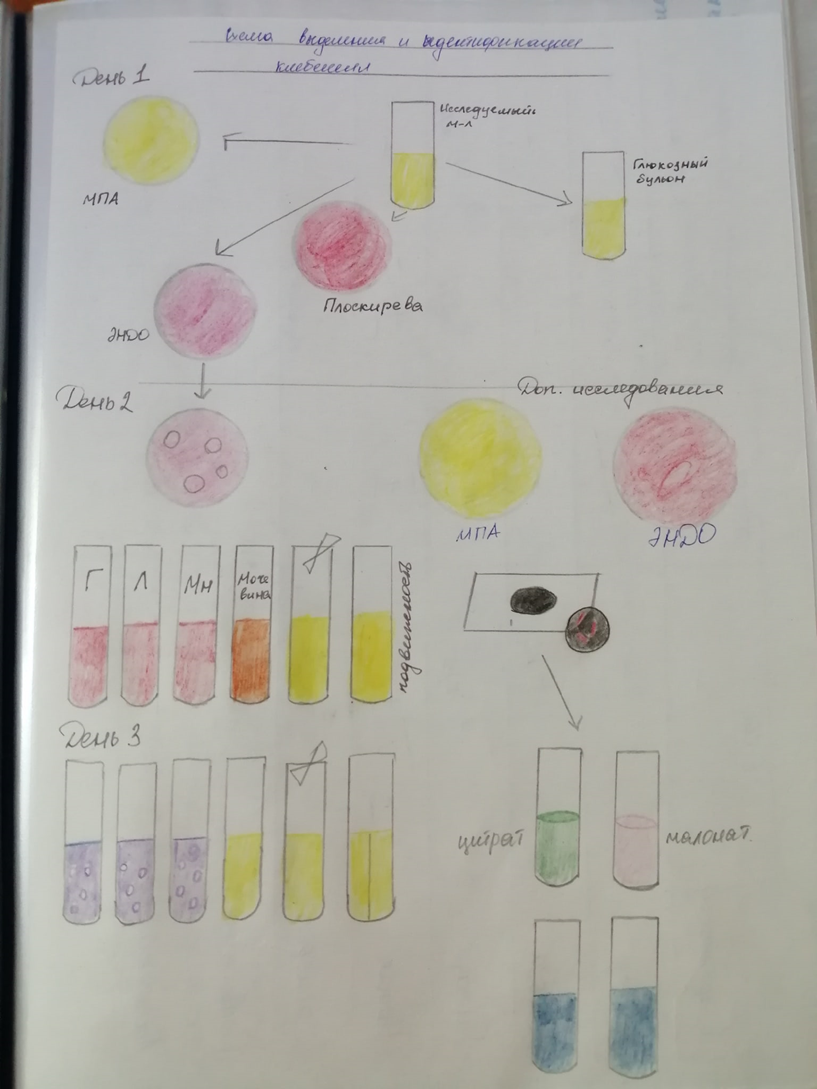 Схема выделения и идентификации
клебсиелл
День 1
Исследуемый
м-л
Глюкозный
бульон
МПА
Плоскирева
ЭНДО
День 2
Доп. исследования
МПА
ЭНДО
Г
Л
Мн
Моче
вина
подвижность
День 3
цитрат
малонат.